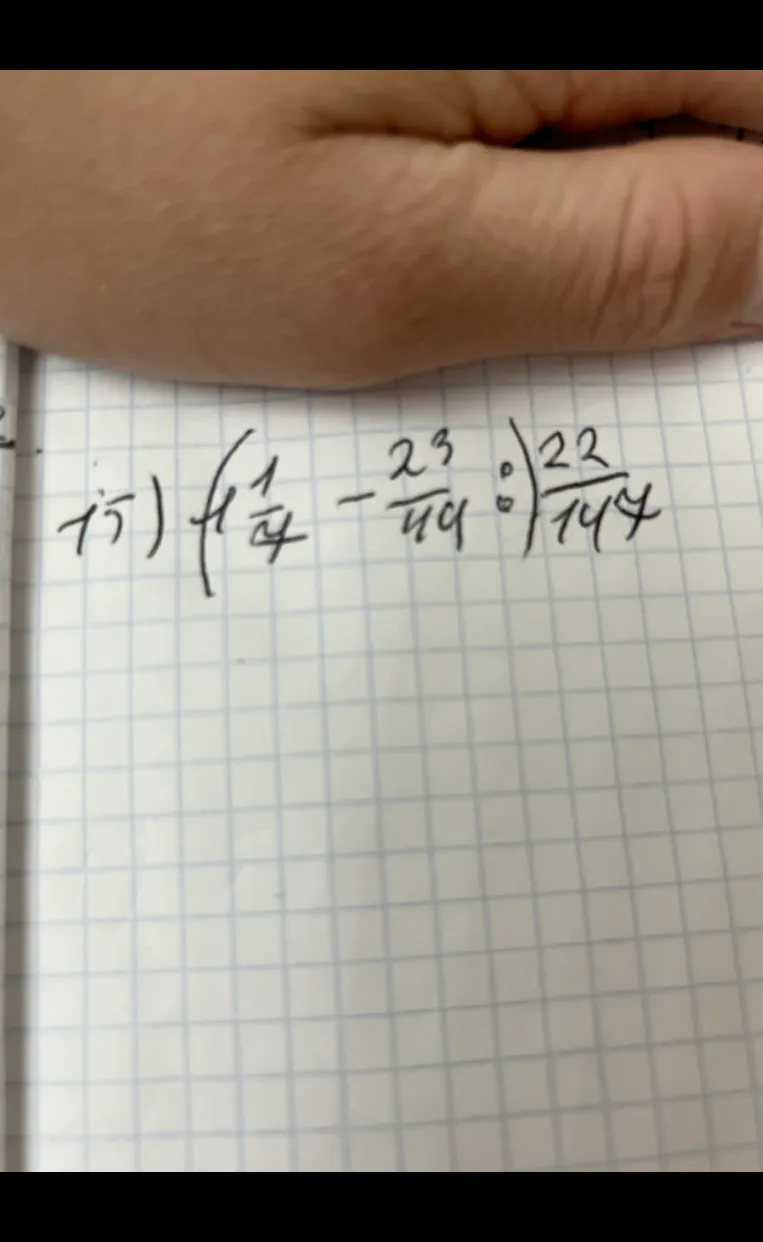 15) (1 1/7 - 23/49 :) 22/147